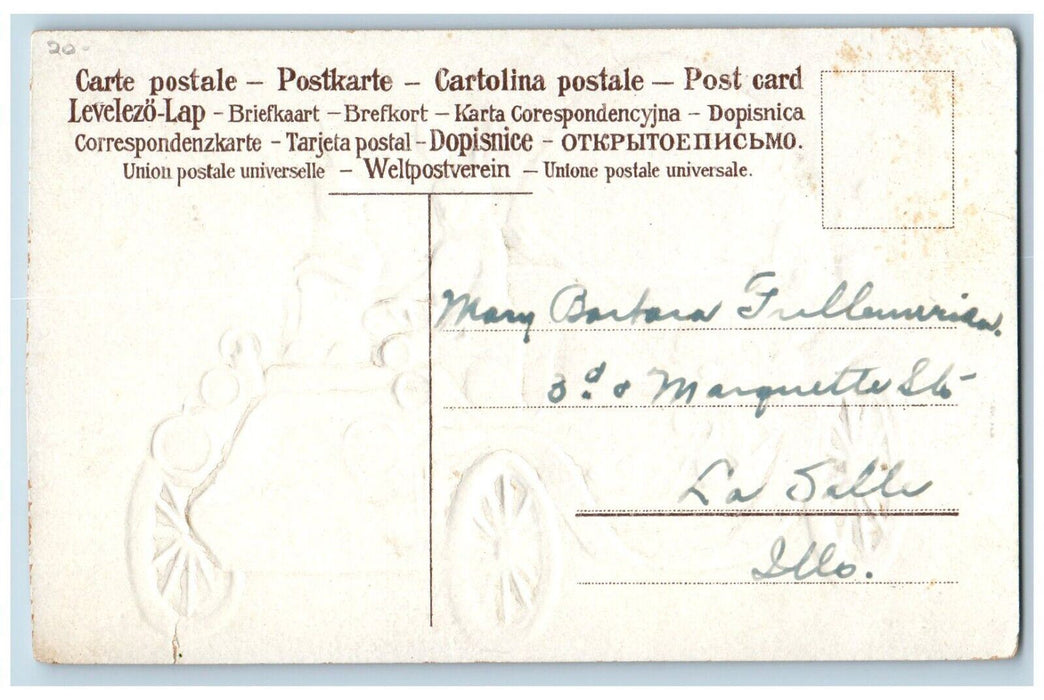 20-
Carte postale – Postkarte – Cartolina postale — Post card
Levelező-Lap – Briefkaart – Brefkort – Karta Corespondencyjna – Dopisnica
Correspondenzkarte – Tarjeta postal – Dopisnice – ОТКРЫТОЕПИСЬМО.
Union postale universelle – Weltpostverein – Unione postale universale.
Mary Barbara
3d & Marquette Sts
La Salle
Ills.